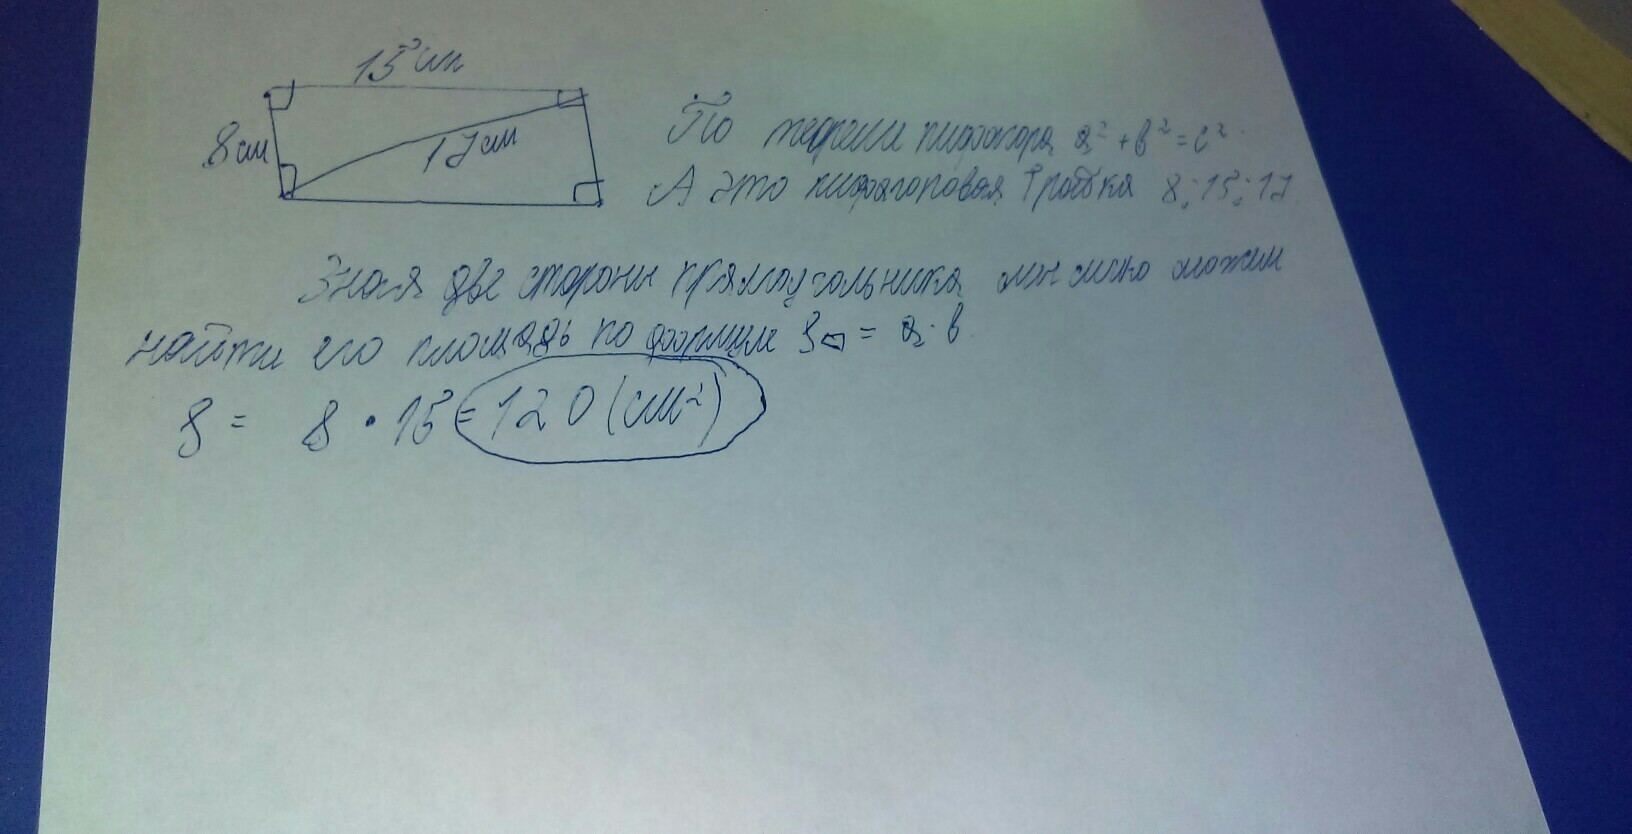 15 см
8 см
17 см
По теореме пифагора a² + b² = c².
А это пифагоровая тройка 8; 15; 17
Зная две стороны прямоугольника мы легко можем
найти его площадь по формуле S▱ = a · b.
S = 8 · 15 = 120 (см²)